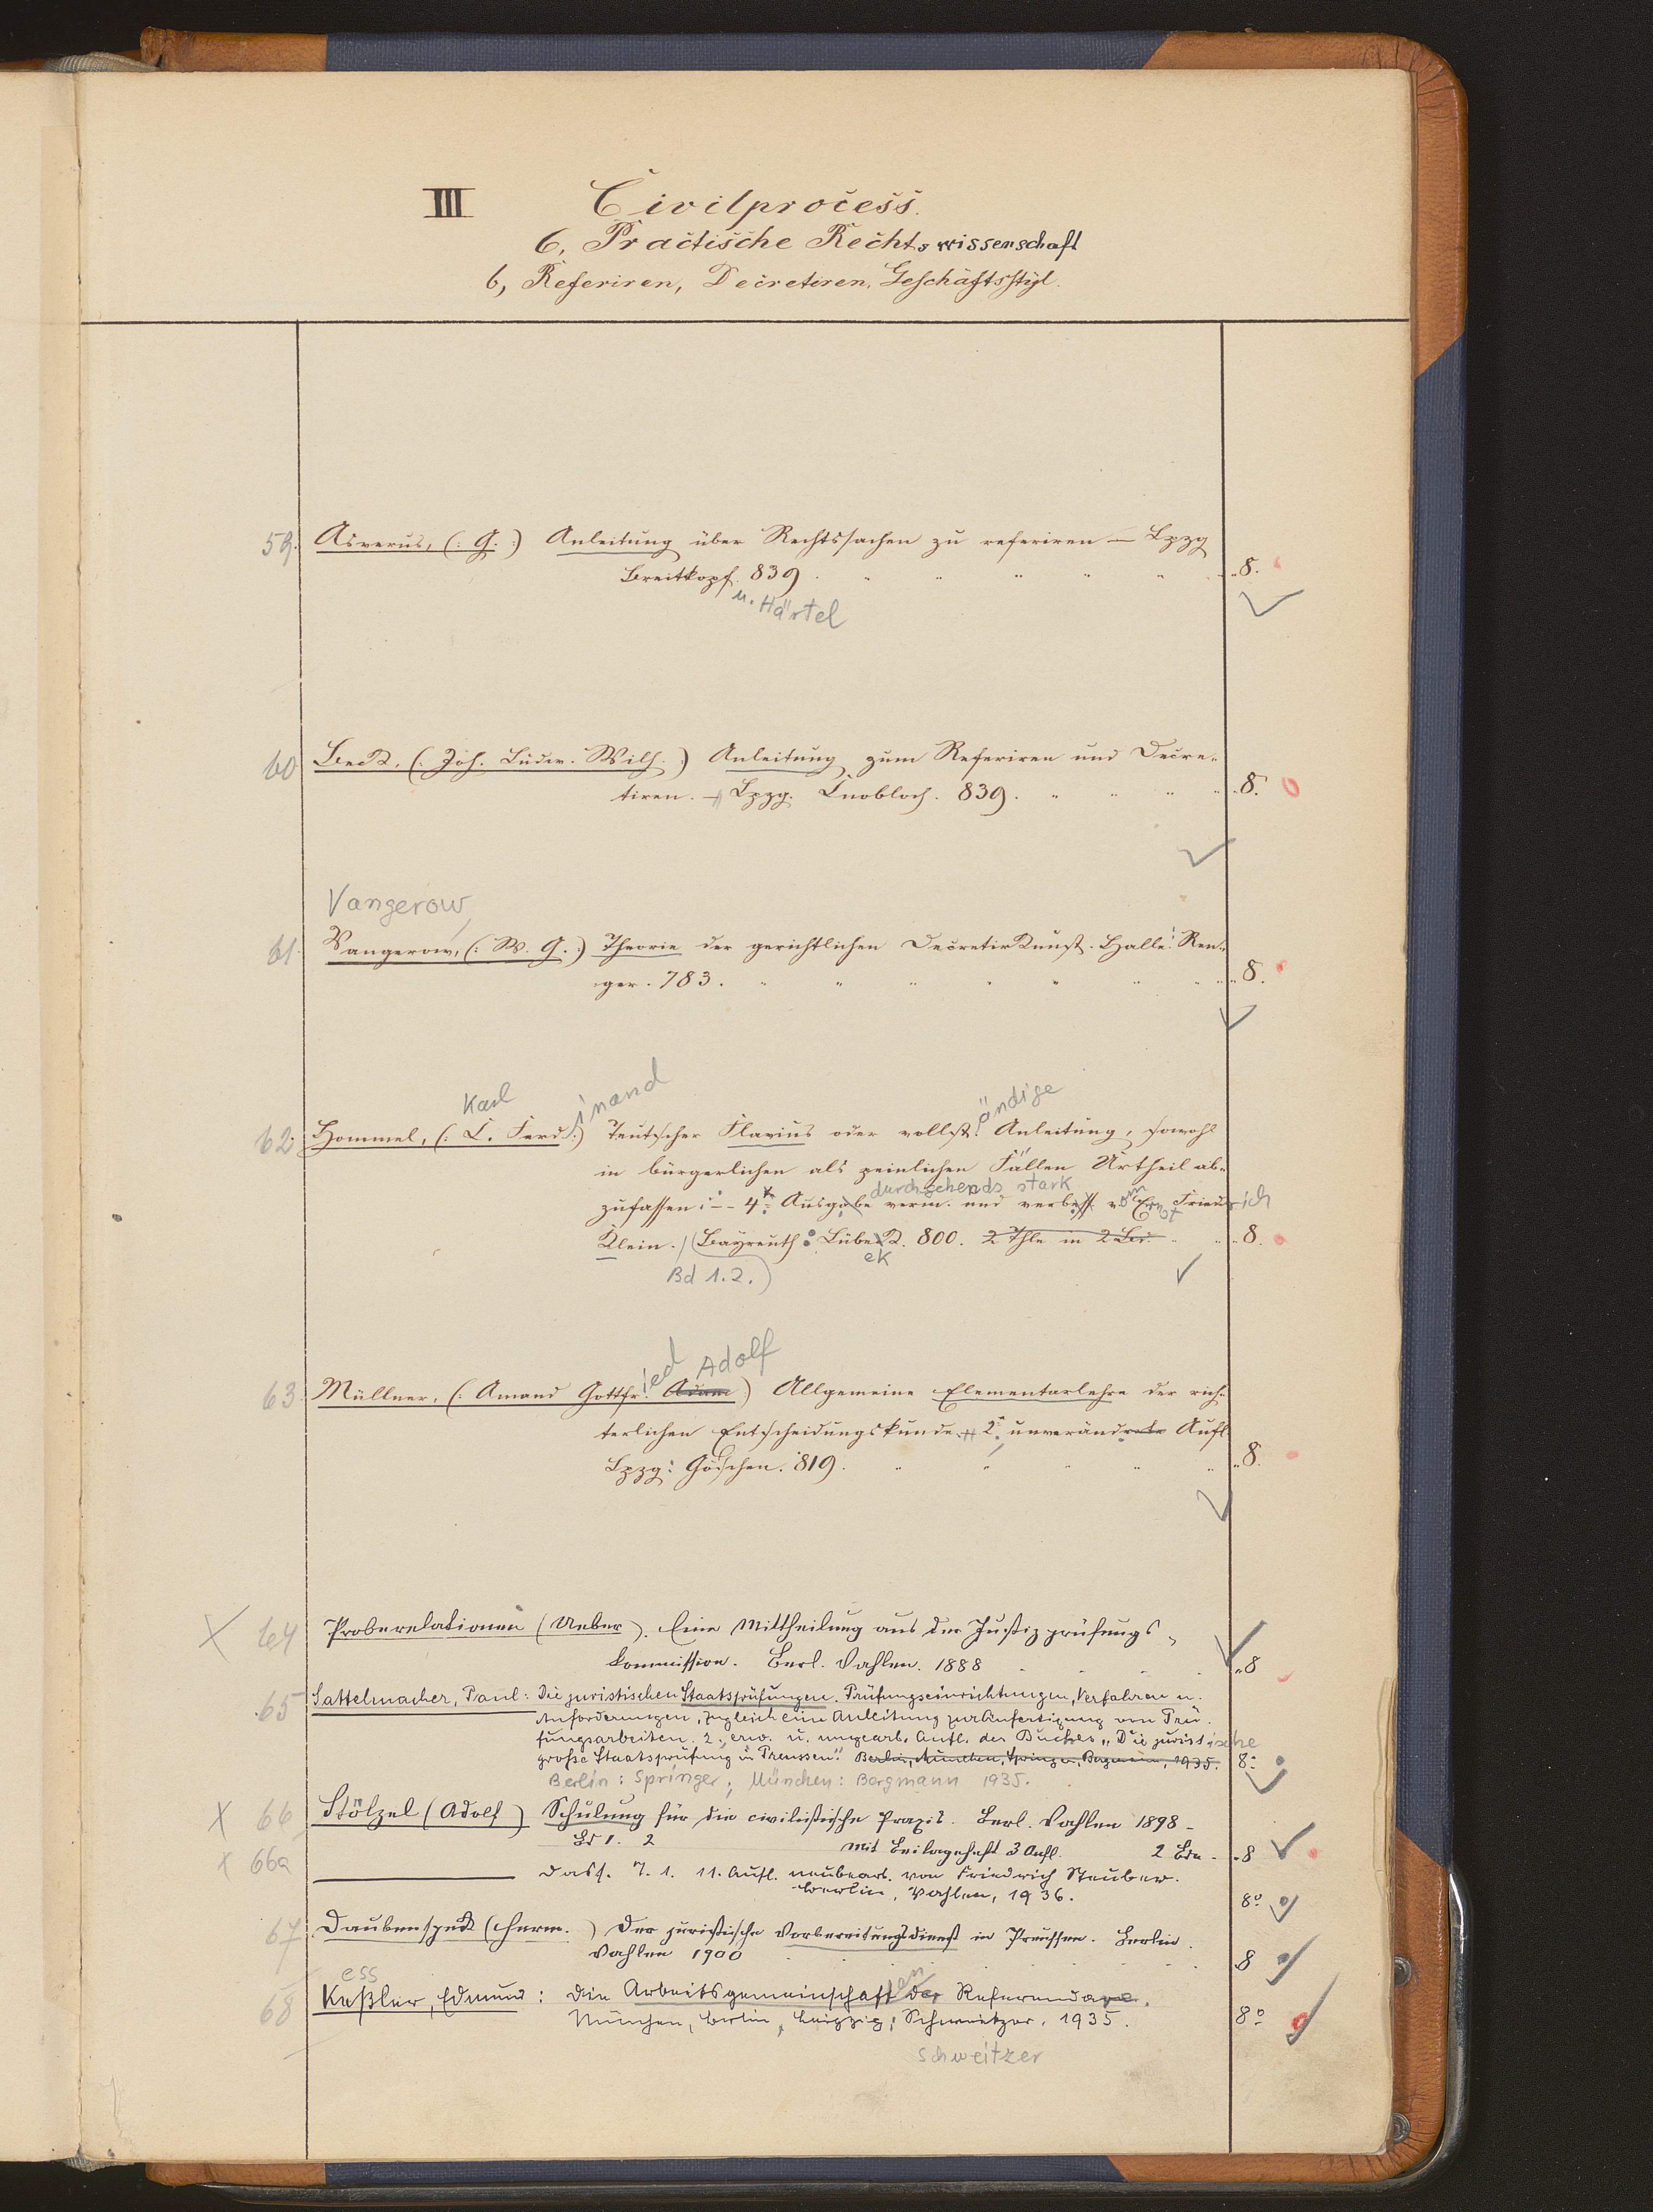 III Civilprocess.
6, Practische Rechtswissenschaft
b, Referiren, Decretiren, Geschäftsstyl.
59. Asverus, (: G. :) Anleitung über Rechtssachen zu referiren — Lpzg
Breitkopf. 839. 8.
u. Härtel
60 Beck, (: Joh. Ludw. Wilh. :) Anleitung zum Referiren und Decre-
tiren. — Lpzg. Knobloch. 839. 8.
Vangerow
61. Vangerow, (: W. G. :) Theorie der gerichtlichen Decretirkunst. Halle: Ren-
ger. 783. 8.
Karl inand ändige
62. Hommel, (: C. Ferd. :) Teutscher Flavius oder vollst. Anleitung, sowohl
in bürgerlichen als peinlichen Fällen Urtheil ab-
durchgehends stark
zufassen: — 4te Ausgabe verm. und verbess. vom Ernst Friedrich
Klein. (Bayreuth: Lübeck. 800. 2 Thle in 2 Bd. 8.
ek
Bd 1.2.)
ied Adolf
63. Müllner, (: Amand Gottfr. Adam :) Allgemeine Elementarlehre der rich-
terlichen Entscheidungskunde. 2. unverändrete Aufl.
Lpzg: Göschen. 819. 8.
64 Proberelationen (Ueber). Eine Mittheilung aus der Justizprüfungs-
kommission. Berl. Vahlen. 1888 8
65 Sattelmacher, Paul: Die juristischen Staatsprüfungen. Prüfungseinrichtungen, Verfahren u.
Anforderungen, zugleich eine Anleitung zur Anfertigung von Prü-
fungsarbeiten. 2., erw. u. umgearb. Aufl. des Buches „Die juristische
große Staatsprüfung in Preussen". Berlin, München, Springer, Bergmann, 1935. 8°
Berlin: Springer; München: Bergmann 1935.
66 Stölzel (Adolf) Schulung für die civilistische Praxis. Berl. Vahlen 1898-
Bd 1. 2 mit Beilageheft 3 Aufl. 2 Bde. 8
66a Dass. T. 1. 11. Aufl. neubearb. von Friedrich Steuber.
Berlin, Vahlen, 1936. 8°
67 Daubenspeck (Herm.) Der juristische Vorbereitungsdienst in Preussen. Berlin.
Vahlen 1900 8
ess en
68 Keßler, Edmund: Die Arbeitsgemeinschaft der Referendare.
München, Berlin, Leipzig: Schweitzer, 1935. 8°
Schweitzer